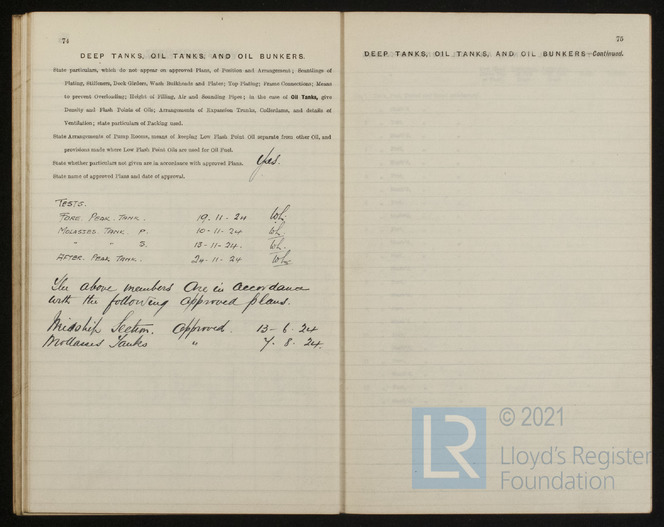 74
DEEP TANKS, OIL TANKS, AND OIL BUNKERS.
State particulars, which do not appear on approved Plans, of Position and Arrangement; Scantlings of
Plating, Stiffeners, Deck Girders, Wash Bulkheads and Plates; Top Plating; Frame Connections; Means
to prevent Overloading; Height of Filling, Air and Sounding Pipes; in the case of Oil Tanks, give
Density and Flash Points of Oils; Arrangements of Expansion Trunks, Cofferdams, and details of
Ventilation; state particulars of Packing used.
State Arrangements of Pump Rooms, means of keeping Low Flash Point Oil separate from other Oil, and
provisions made where Low Flash Point Oils are used for Oil Fuel.
State whether particulars not given are in accordance with approved Plans. Yes.
State name of approved Plans and date of approval.
TESTS.
FORE. PEAK. TANK. 19-11-24 Wh.
MOLASSES. TANK P. 10-11-24 Wh.
" " S. 13-11-24. Wh.
AFTER. PEAK TANK. 24-11-24 Wh.
The above members are in accordance
with the following approved plans.
Midship Section. approved. 13-6-24
Mollasses Tanks " 7.8.24.
75
DEEP TANKS, OIL TANKS, AND OIL BUNKERS—Continued.
LR
© 2021
Lloyd's Register
Foundation